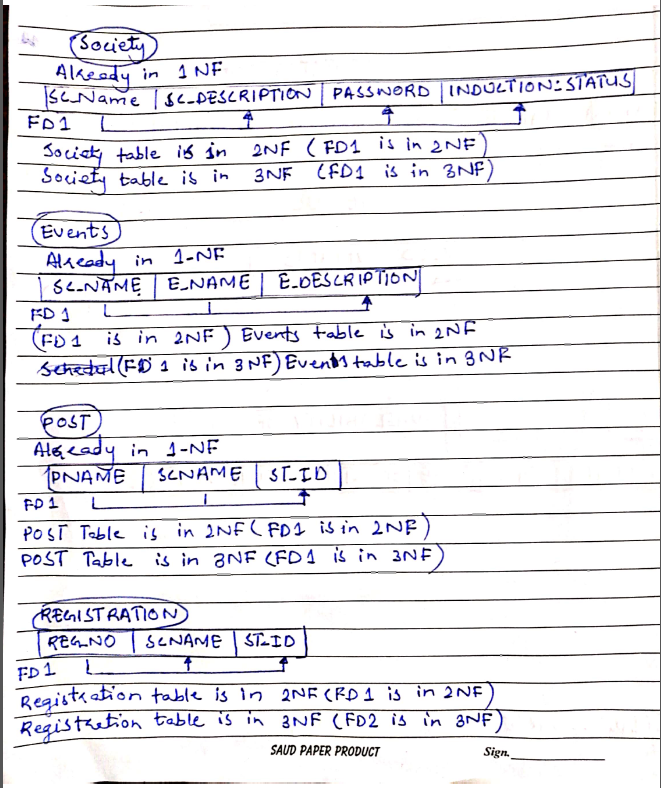 Society
Already in 1NF
SC_Name | SC_DESCRIPTION | PASSWORD | INDUCTION_STATUS
FD1
Society table is in 2NF (FD1 is in 2NF)
Society table is in 3NF (FD1 is in 3NF)
Events
Already in 1-NF
SC_NAME | E_NAME | E_DESCRIPTION
FD1
(FD1 is in 2NF) Events table is in 2NF
(FD 1 is in 3NF) Events table is in 3NF
POST
Already in 1-NF
PNAME | SCNAME | ST_ID
FD1
POST Table is in 2NF (FD1 is in 2NF)
POST Table is in 3NF (FD1 is in 3NF)
REGISTRATION
REG_NO | SCNAME | ST_ID
FD1
Registration table is in 2NF (FD1 is in 2NF)
Registration table is in 3NF (FD2 is in 3NF)
SAUD PAPER PRODUCT Sign.